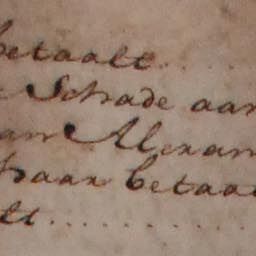 betaalt . . . . .
Schade aan
am Alexan
haar betaa
lt . . . . . . . . .